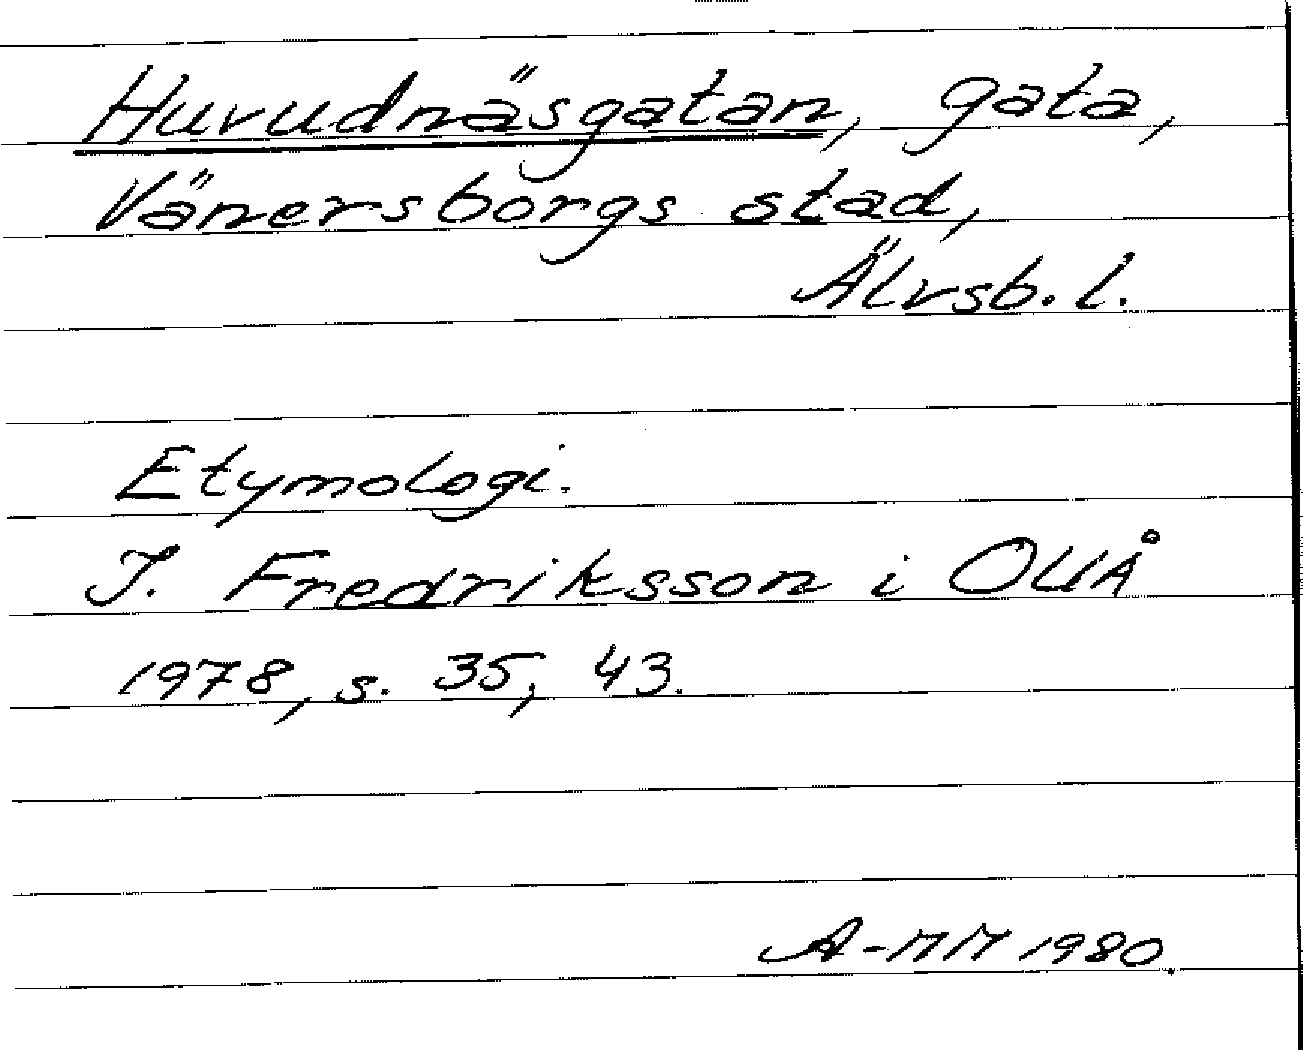 Huvudnäsgatan, gata,
Vänersborgs stad,
Älvsb. l.
Etymologi.
I. Fredriksson i OUÅ
1978, s. 35, 43.
A-MM 1980.